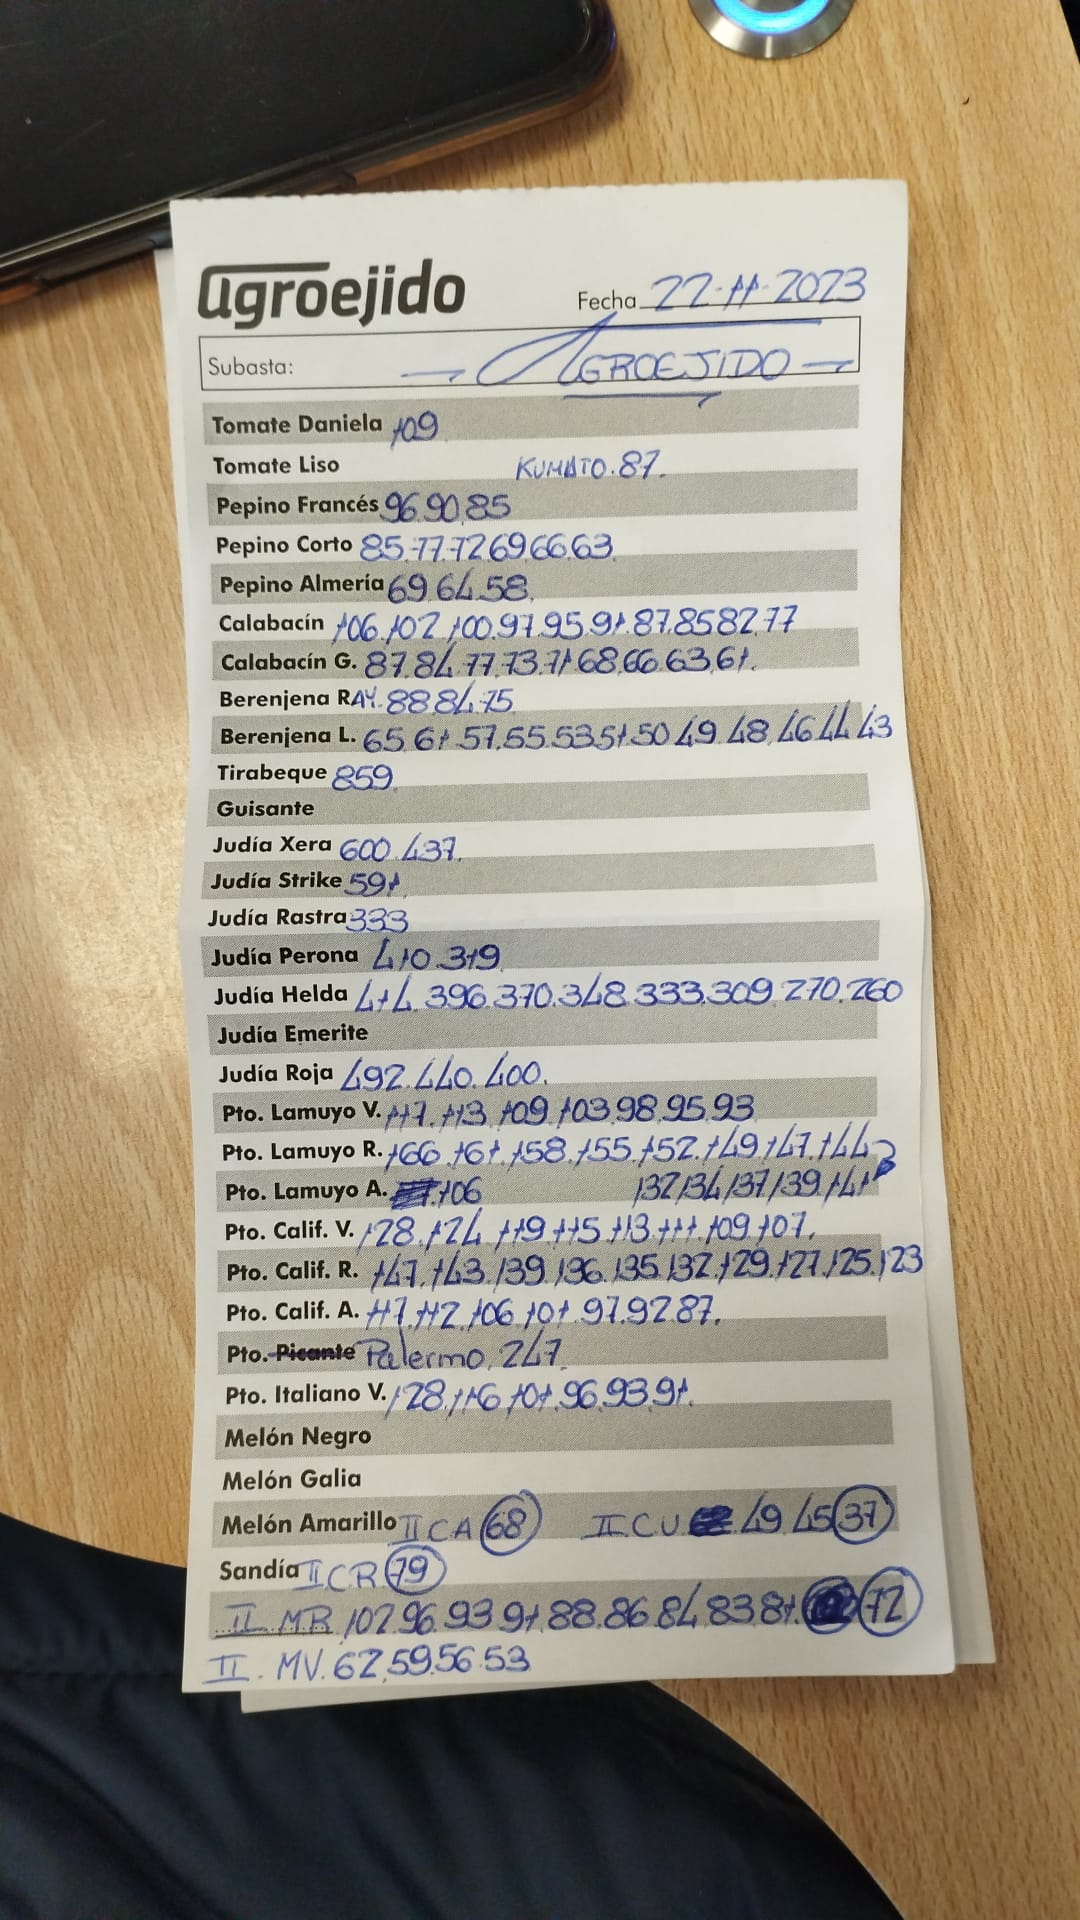 agroejido
Fecha 22-11-2023
Subasta: — AGROEJIDO —
Tomate Daniela 109
Tomate Liso KUMATO.87.
Pepino Francés 96.90.85
Pepino Corto 85.77.72.69.66.63.
Pepino Almería 69.64.58.
Calabacín 106.102.100.97.95.91.87.85.82.77
Calabacín G. 87.84.77.73.71.68.66.63.61.
Berenjena RAY. 88.84.75.
Berenjena L. 65.61.57.55.53.51.50.49.48.46.44.43
Tirabeque 859.
Guisante
Judía Xera 600.437.
Judía Strike 591.
Judía Rastra 333
Judía Perona 410.319.
Judía Helda 414.396.370.348.333.309.270.260
Judía Emerite
Judía Roja 492.440.400.
Pto. Lamuyo V. 117.113.109.103.98.95.93
Pto. Lamuyo R. 166.161.158.155.152.149.147.144
132.134.137.139.141
Pto. Lamuyo A. 106
Pto. Calif. V. 128.124.119.115.113.111.109.107.
Pto. Calif. R. 147.143.139.136.135.132.129.127.125.123
Pto. Calif. A. 117.112.106.101.97.92.87.
Pto. Picante Palermo. 247.
Pto. Italiano V. 128.116.101.96.93.91.
Melón Negro
Melón Galia
Melón Amarillo II CA 68 II CU 49 45 37
Sandía II CR 79
II MR 102.96.93.91.88.86.84.83.81. 72
II. MV. 62.59.56.53